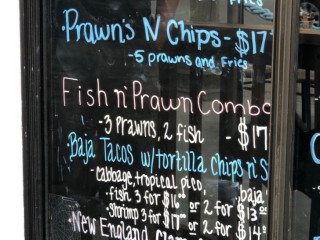 Prawn's N Chips - $17
-5 prawns and Fries
Fish n' Prawn Combo
-3 Prawns, 2 fish - $17
Baja Tacos w/tortilla chips n's
-Cabbage, tropical pico, baja
fish 3 for $16 or 2 for $13
Shrimp 3 for $17 or 2 for $14
New England